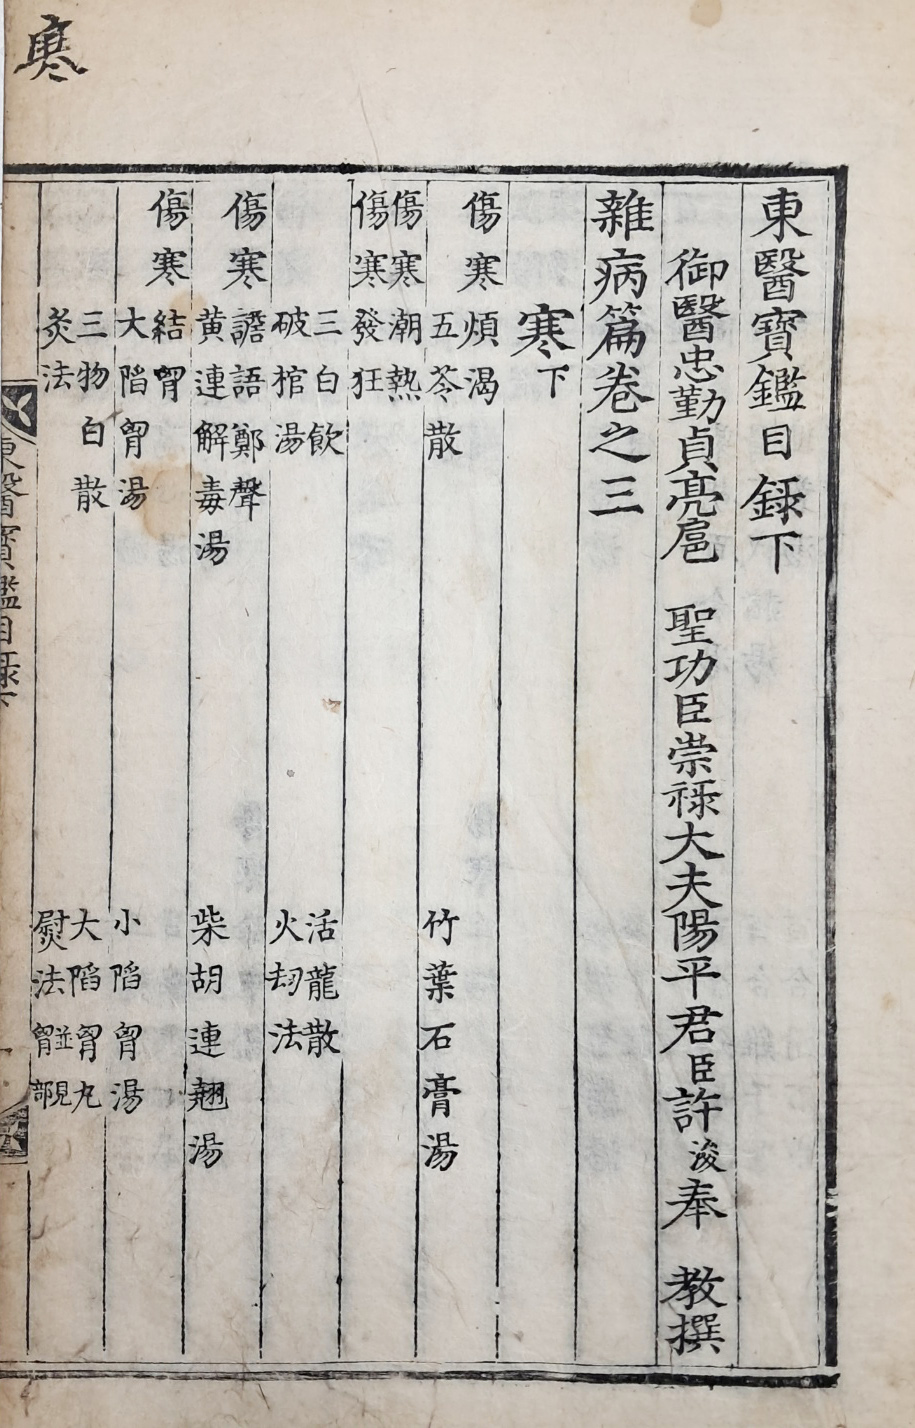 寒
東醫寶鑑目録下
御醫忠勤貞亮扈　聖功臣崇禄大夫陽平君臣許浚奉　教撰
雜病篇卷之三
寒下
傷寒煩渴
五苓散　竹葉石膏湯
傷寒潮熱
傷寒發狂
三白飲　活龍散
破棺湯　火刼法
傷寒譫語鄭聲
黄連解毒湯　柴胡連翹湯
傷寒結胷
大陷胷湯　小陷胷湯
三物白散　大陷胷丸
灸法　熨法並見胷部
東醫寶鑑目録下